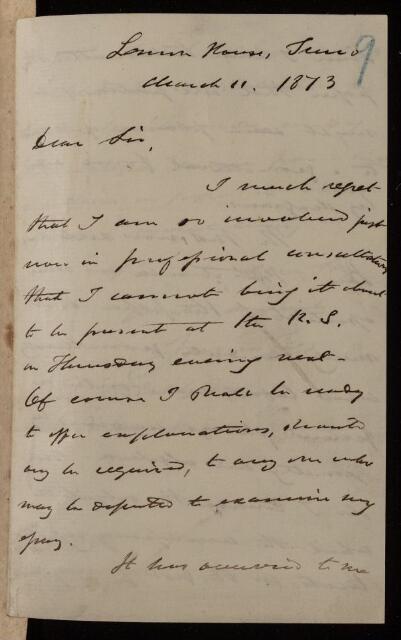 House,
9
March 11. 1873
Dear Sir,
I much regret
that I am so involved just
now in professional consultations
that I cannot bring it about
to be present at the R. S.
on Thursday evening next.
Of course I shall be ready
to offer explanations, should
any be required, to any one who
may be deputed to examine my
essay.
It has occurred to me